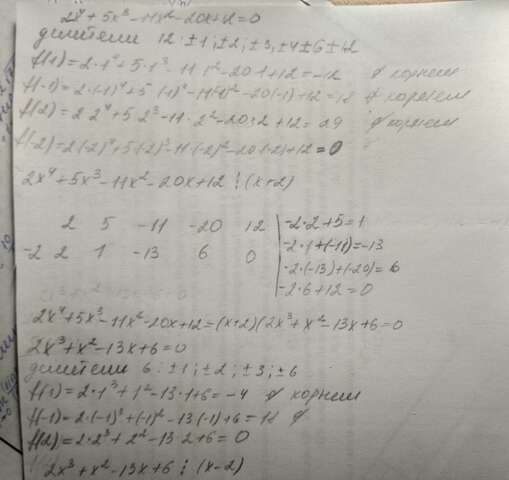 2x⁴+5x³-11x²-20x+12=0
делители 12: ±1; ±2; ±3, ±4 ±6 ±12
f(1)=2·1⁴+5·1³-11·1²-20·1+12=-12 ∉ корнем
f(-1)=2·(-1)⁴+5·(-1)³-11(-1)²-20·(-1)+12=18 ∉ корнем
f(2)=2·2⁴+5·2³-11·2²-20·2+12=29 ∉ корнем
f(-2)=2(-2)⁴+5(-2)³-11(-2)²-20(-2)+12=0
2x⁴+5x³-11x²-20x+12 : (x+2)
2 5 -11 -20 12 | -2·2+5=1
-2 2 1 -13 6 0 | -2·1+(-11)=-13
-2·(-13)+(-20)=6
-2·6+12=0
2x⁴+5x³-11x²-20x+12=(x+2)(2x³+x²-13x+6=0
2x³+x²-13x+6=0
делители 6: ±1; ±2; ±3; ±6
f(1)=2·1³+1²-13·1+6=-4 ∉ корнем
f(-1)=2·(-1)³+(-1)²-13(-1)+6=18 ∉
f(2)=2·2³+2²-13·2+6=0
2x³+x²-13x+6 : (x-2)